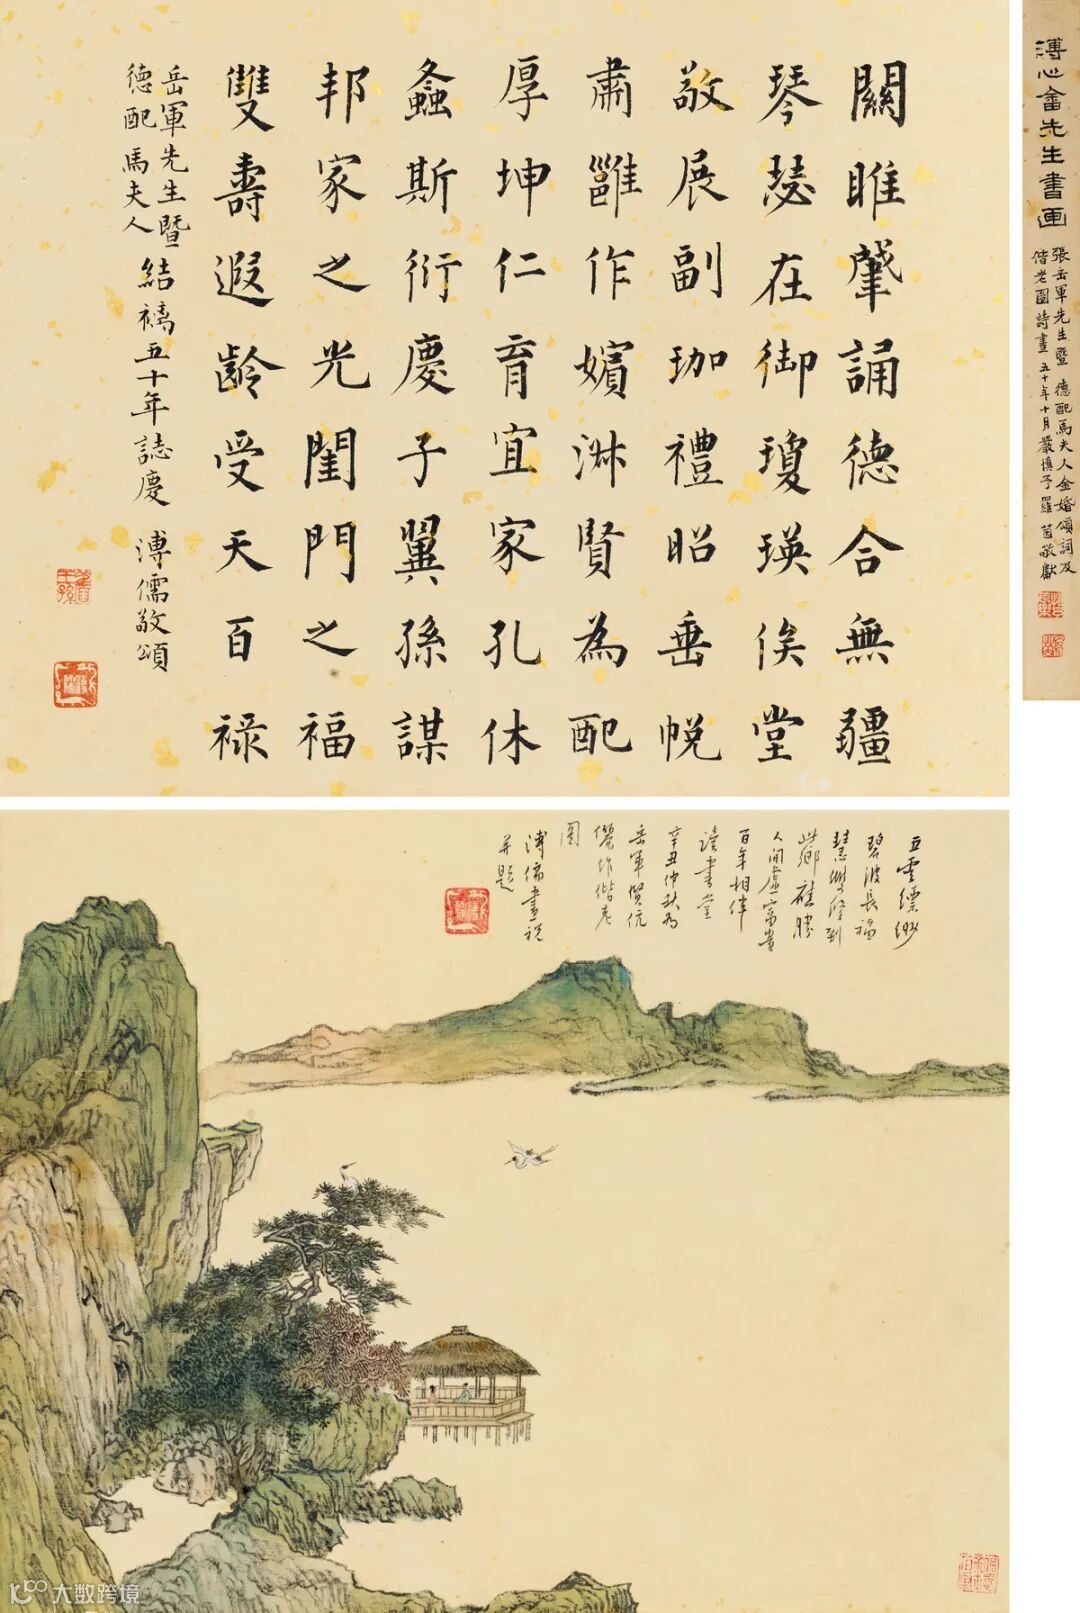 關雎肇誦德合無疆
琴瑟在御瓊瑛俟堂
敬展副珈禮昭垂帨
肅雝作嬪淋賢為配
厚坤仁育宜家孔休
螽斯衍慶子翼孫謀
邦家之光閨門之福
雙壽遐齡受天百祿
岳軍先生暨
德配馬夫人
結褵五十年誌慶 溥儒敬頌
溥心畬先生書画
張岳軍先生暨 德配馬夫人金婚頌詞及
偕老圖詩畫 五十年十月嚴慎予羅茵敬獻
五雲縹緲
碧波長福
慧雙修到
此鄉應勝
人間虛富貴
百年相伴
讀書堂
辛丑仲秋為
岳軍賢伉
儷作偕老
圖
溥儒畫祝
并題
大数跨境